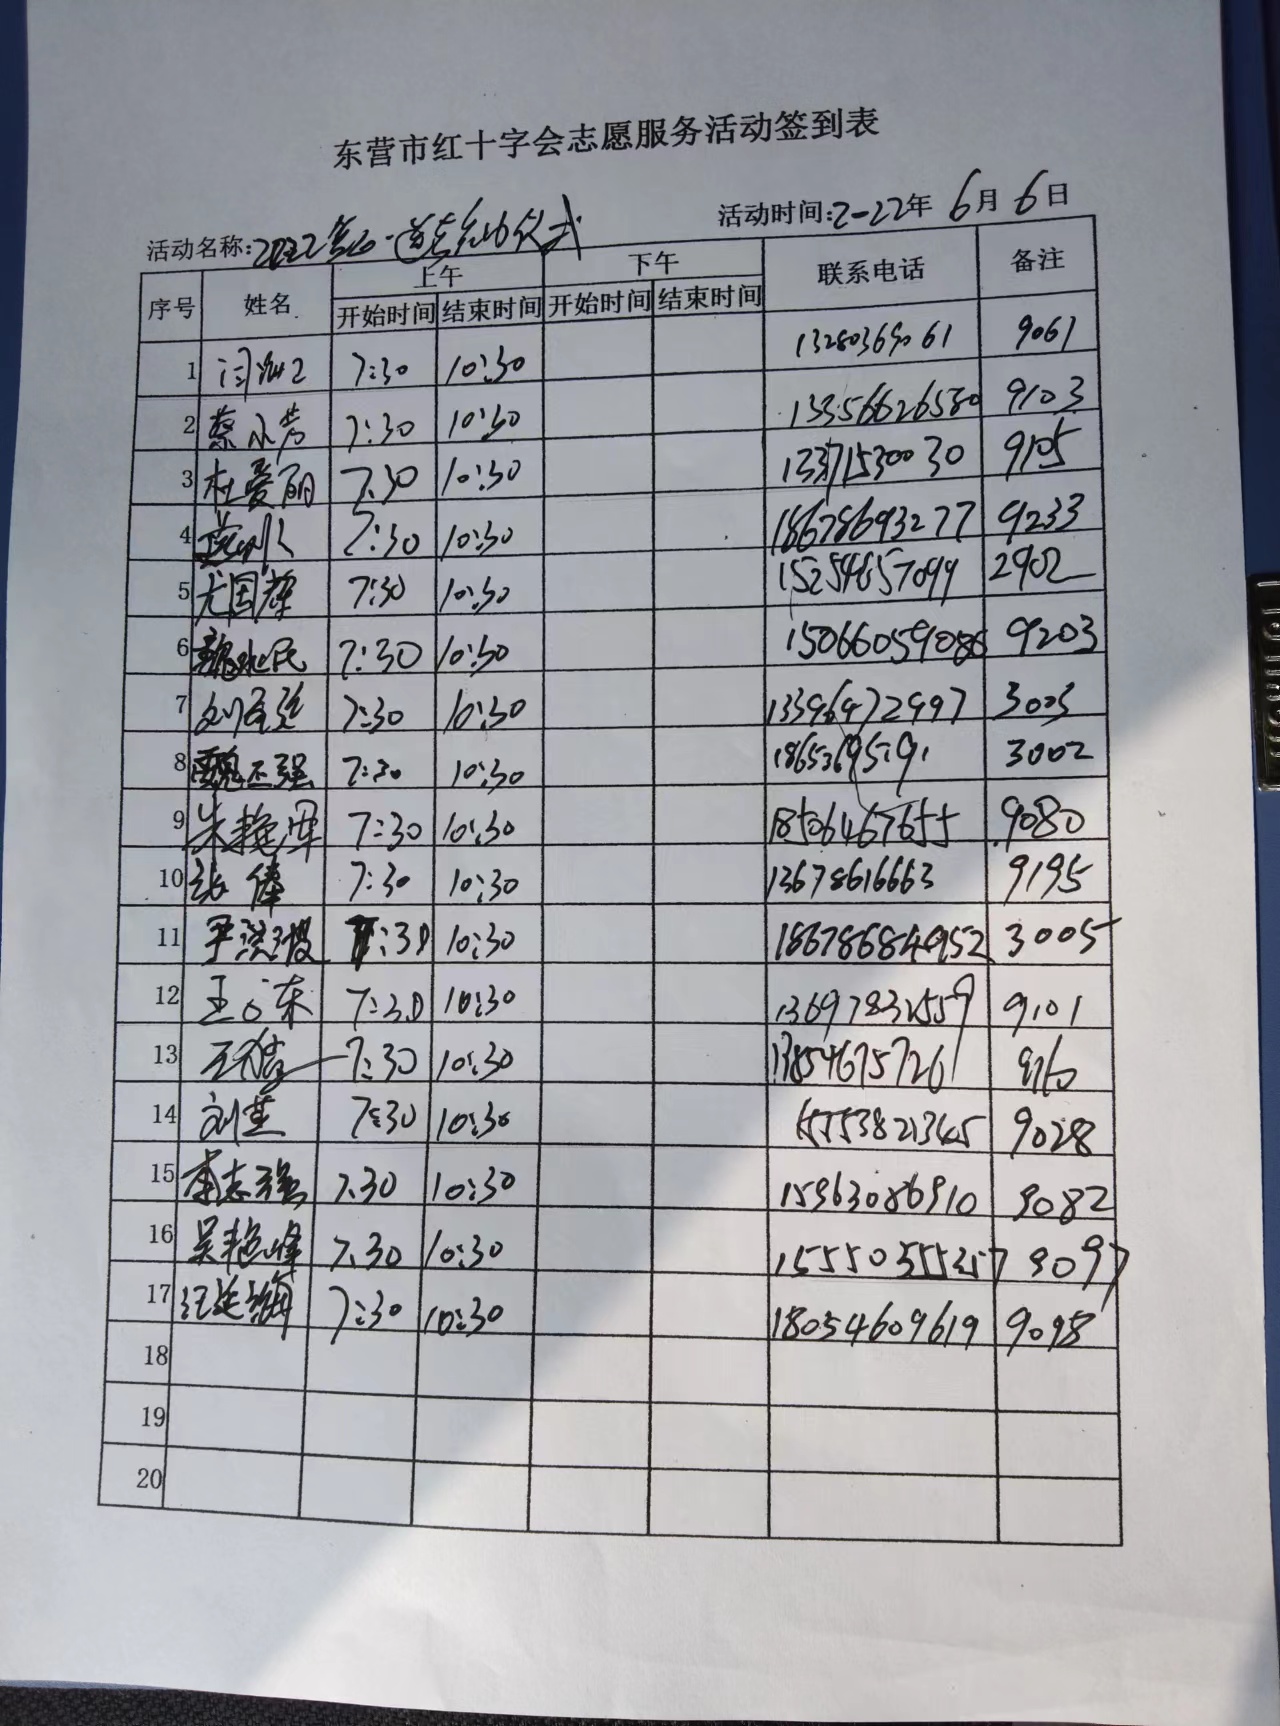 东营市红十字会志愿服务活动签到表
活动名称: 2022 仪式 活动时间:2022年6月6日
序号 姓名 上午 下午 联系电话 备注
开始时间 结束时间 开始时间 结束时间
1 7:30 10:30 13280369061 9061
2 蔡小芳 7:30 10:30 13356626580 9103
3 杜爱丽 7:30 10:30 13371530030 9105
4 7:30 10:30 18678693277 9233
5 尤国辉 7:30 10:30 15254657099 2902
6 魏 民 7:30 10:30 9203
7 刘 强 7:30 10:30 13396472997 3003
8 魏玉强 7:30 10:30 3002
9 朱艳军 7:30 10:30 18506467655 9080
10 张俸 7:30 10:30 13678616663 9195
11 7:30 10:30 3005
12 王 东 7:30 10:30 13697832559 9101
13 7:30 10:30 13854675726 9160
14 刘芸 7:30 10:30 15753821345 9028
15 李志强 7:30 10:30 15963086910 9082
16 吴艳峰 7:30 10:30 15550355357 9097
17 汪延海 7:30 10:30 18054609619 9098
18
19
20